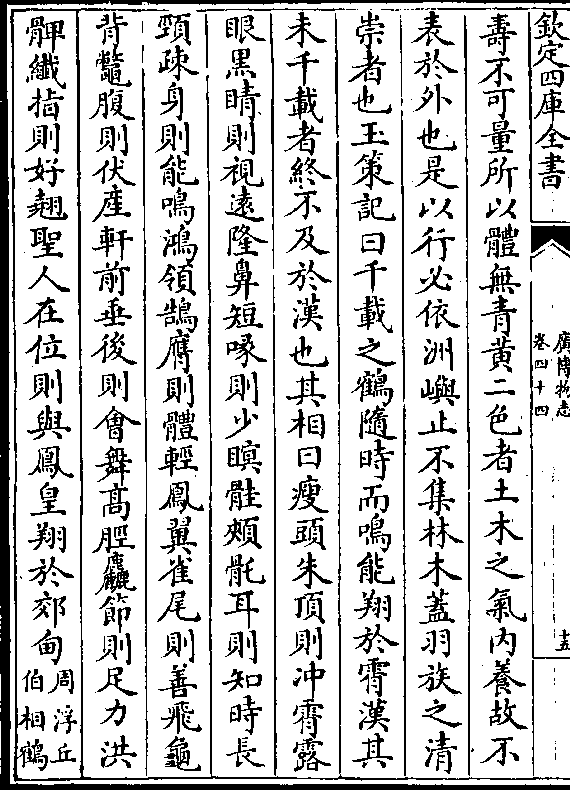 欽定四庫全書
廣博物志
卷四十四
十五
壽不可量所以體無青黃二色者土木之氣內養故不
表於外也是以行必依洲嶼止不集林木蓋羽族之清
崇者也玉策記曰千載之鶴隨時而鳴能翔於霄漢其
未千載者終不及於漢也其相曰瘦頭朱頂則冲霄露
眼黒睛則視遠隆鼻短喙則少瞑䯀頰𩨗耳則知時長
頸竦身則能鳴鴻領鵠膺則體輕鳳翼雀尾則善飛龜
背鼈腹則伏產軒前垂後則會舞髙脛麤節則足力洪
髀纖指則好翹聖人在位則與鳳皇翔於郊甸周浮丘
伯相鶴